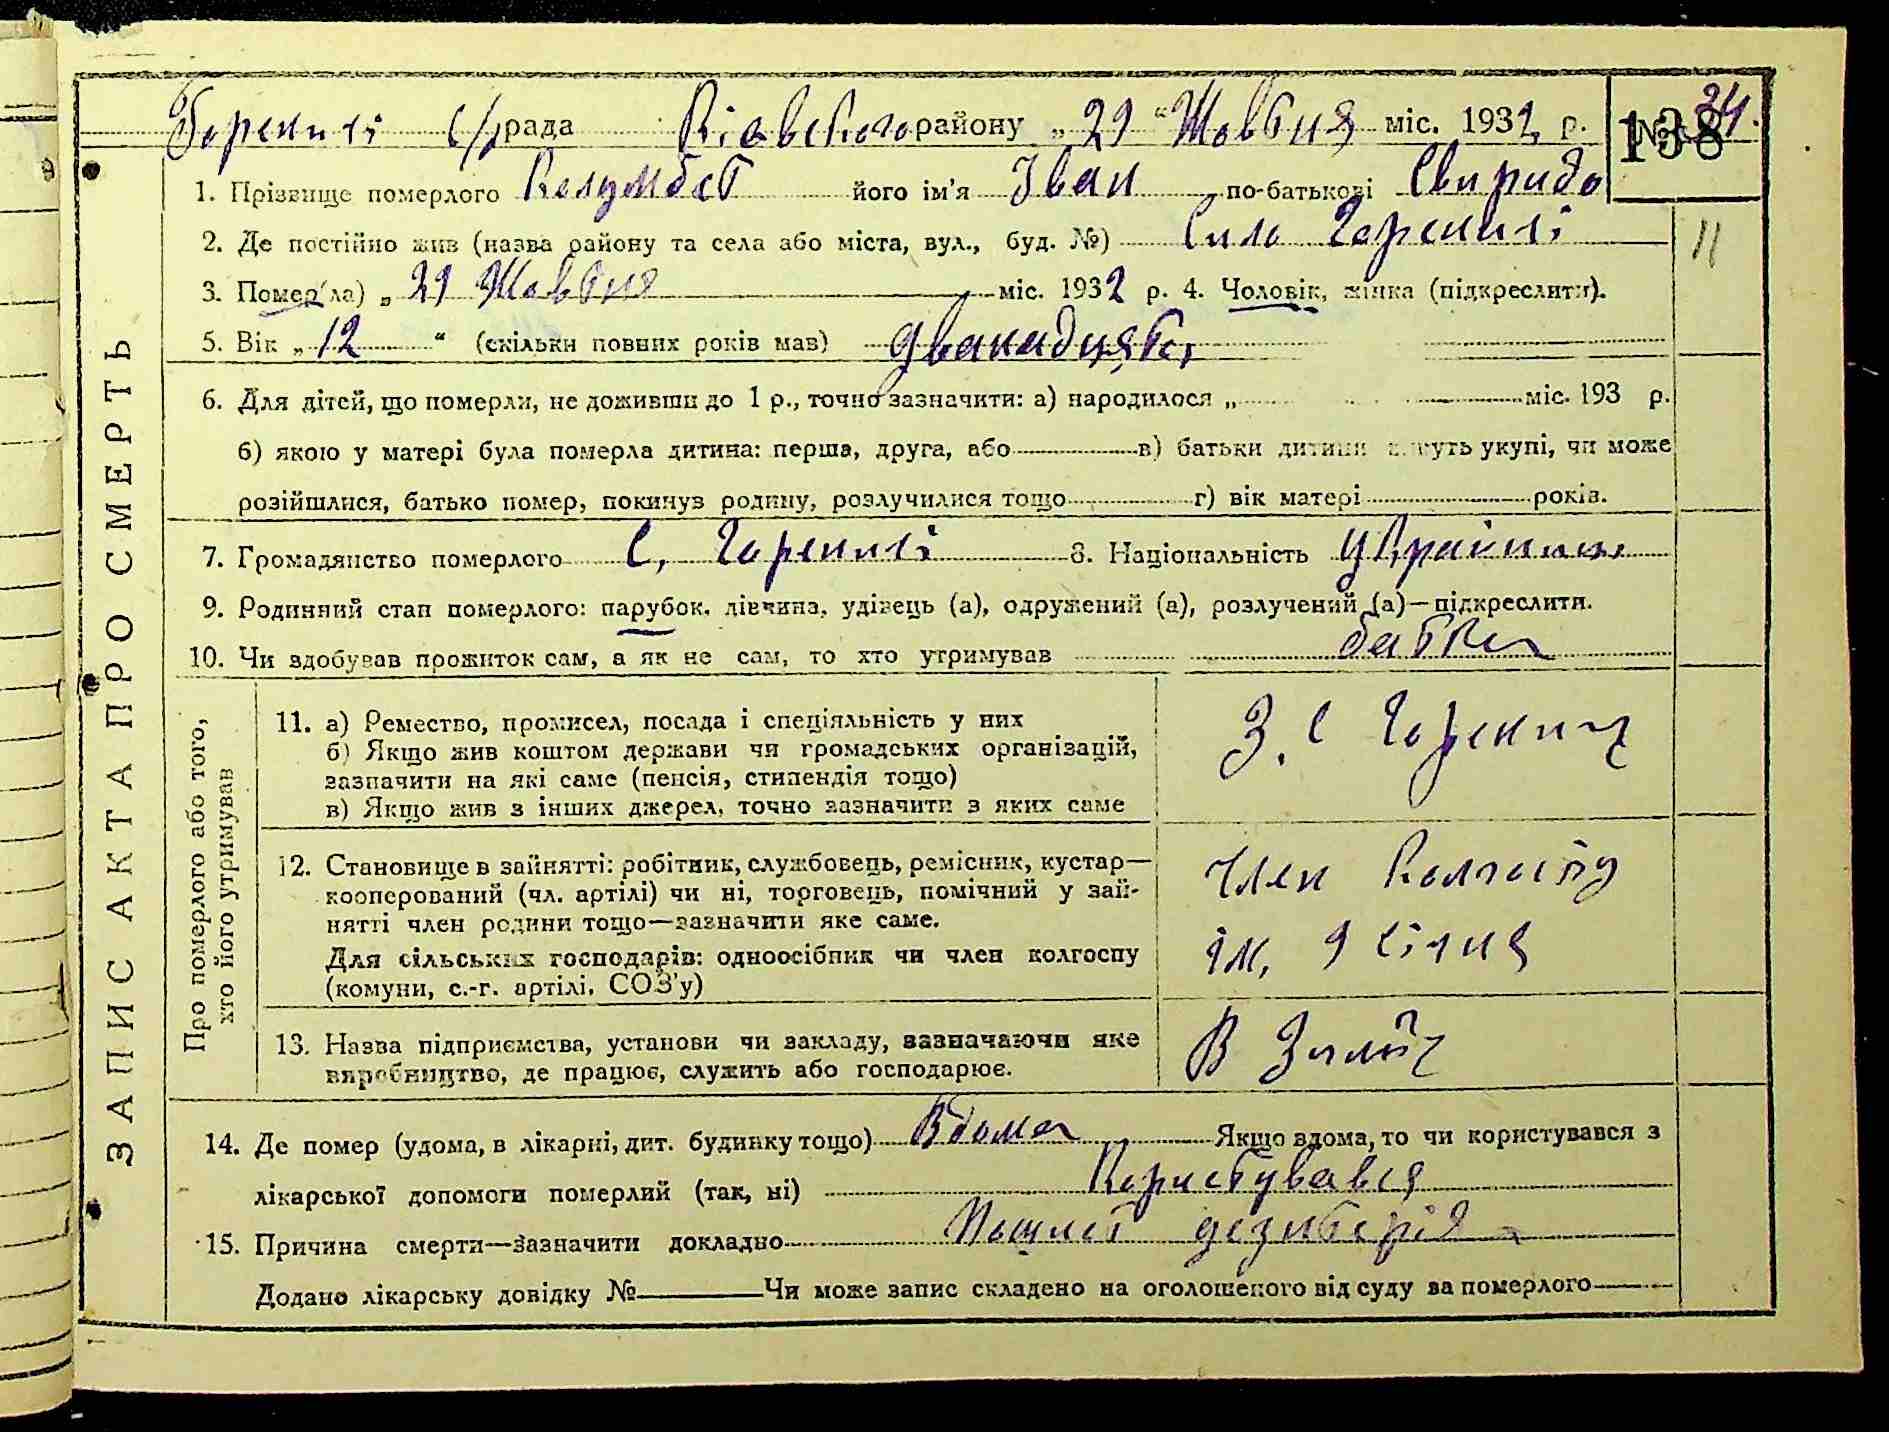 Гореничі с/рада Київского району „29“ Жовтня міс. 1932 р. № 34.
138
1. Прізвище померлого Колумбет його ім'я Іван по-батькові Свиридо
11
2. Де постійно жив (назва району та села або міста, вул., буд. №) Село Гореничі
3. Помер(ла) „29 Жовтня міс. 1932 р. 4. Чоловік, жінка (підкреслити).
5. Вік „12“ (скільки повних років мав) дванадцять
6. Для дітей, що померли, не доживши до 1 р., точно зазначити: а) народилося „ міс. 193 р.
б) якою у матері була померла дитина: перша, друга, або в) батьки дитини живуть укупі, чи може
розійшлися, батько помер, покинув родину, розлучилися тощо г) вік матері років.
7. Громадянство померлого С. Гореничі 8. Національність
9. Родинний стан померлого: парубок, дівчина, удівець (а), одружений (а), розлучений (а)—підкреслити.
10. Чи здобував прожиток сам, а як не сам, то хто утримував батько
ЗАПИС АКТА ПРО СМЕРТЬ
Про померлого або того, хто його утримував
11. а) Ремество, промисел, посада і спеціяльність у них
б) Якщо жив коштом держави чи громадських організацій,
зазначити на які саме (пенсія, стипендія тощо)
в) Якщо жив з інших джерел, точно зазначити з яких саме
З. С Горенич
12. Становище в зайнятті: робітник, службовець, ремісник, кустар—
кооперований (чл. артілі) чи ні, торговець, помічний у зай-
нятті член родини тощо—зазначити яке саме.
Для сільських господарів: одноосібник чи член колгоспу
(комуни, с.-г. артілі, СОЗ'у)
член Колгоспу
ім. 9 січня
13. Назва підприємства, установи чи закладу, зазначаючи яке
виробництво, де працює, служить або господарює.
В
14. Де помер (удома, в лікарні, дит. будинку тощо) Вдома Якщо вдома, то чи користувався з
лікарської допомоги померлий (так, ні) Користувався
15. Причина смерти—зазначити докладно дезинтерія
Додано лікарську довідку № Чи може запис складено на оголошеного від суду за померлого